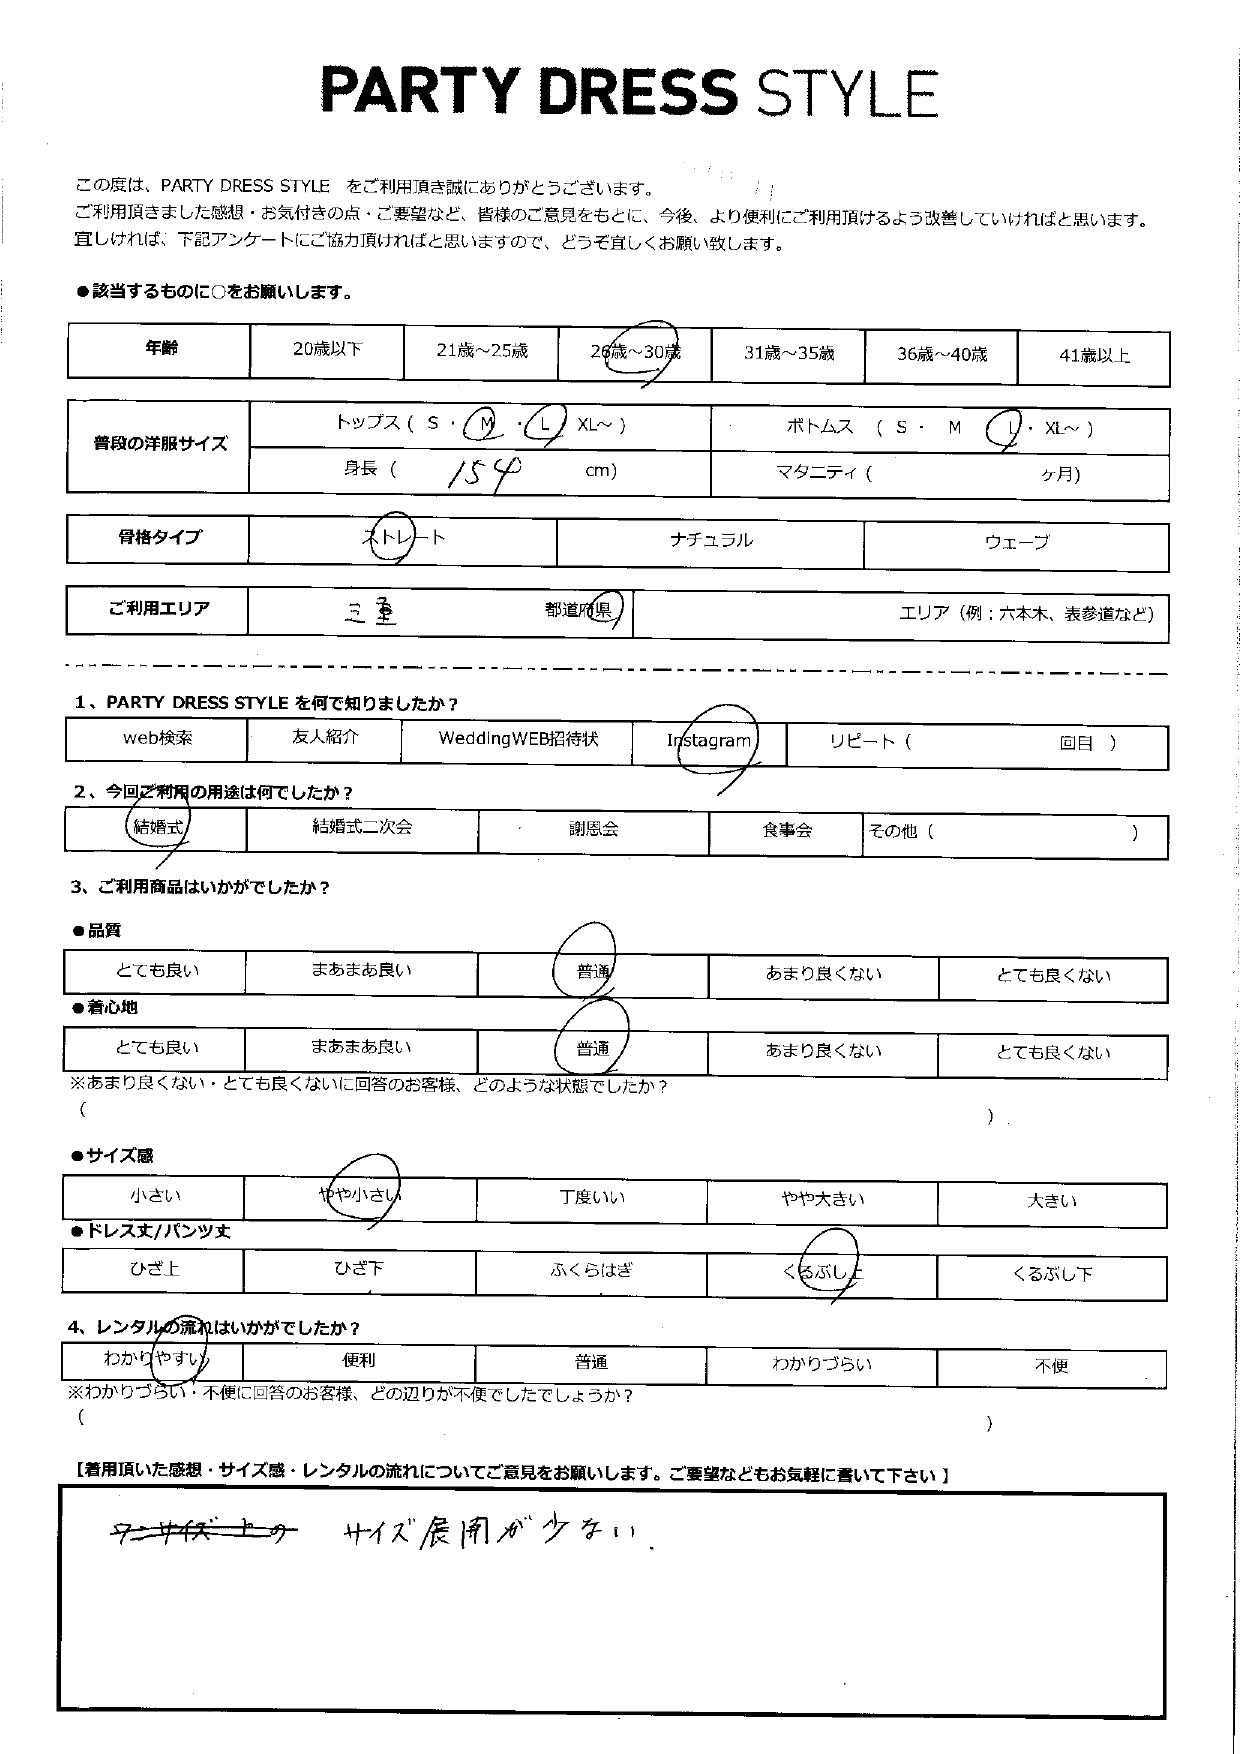 PARTY DRESS STYLE
この度は、PARTY DRESS STYLE をご利用頂き誠にありがとうございます。
ご利用頂きました感想・お気付きの点・ご要望など、皆様のご意見をもとに、今後、より便利にご利用頂けるよう改善していければと思います。
宜しければ、下記アンケートにご協力頂ければと思いますので、どうぞ宜しくお願い致します。
●該当するものに○をお願いします。
年齢 20歳以下 21歳～25歳 26歳～30歳 31歳～35歳 36歳～40歳 41歳以上
普段の洋服サイズ トップス ( S ・ M ・ L XL～ ) ボトムス ( S ・ M L ・ XL～ )
身長 ( 154 cm) マタニティ ( ヶ月)
骨格タイプ ストレート ナチュラル ウェーブ
ご利用エリア 三重 都道府県 エリア（例：六本木、表参道など）
1、PARTY DRESS STYLE を何で知りましたか？
web検索 友人紹介 WeddingWEB招待状 Instagram リピート ( 回目 )
2、今回ご利用の用途は何でしたか？
結婚式 結婚式二次会 謝恩会 食事会 その他 ( )
3、ご利用商品はいかがでしたか？
●品質
とても良い まあまあ良い 普通 あまり良くない とても良くない
●着心地
とても良い まあまあ良い 普通 あまり良くない とても良くない
※あまり良くない・とても良くないに回答のお客様、どのような状態でしたか？
( )
●サイズ感
小さい やや小さい 丁度いい やや大きい 大きい
●ドレス丈/パンツ丈
ひざ上 ひざ下 ふくらはぎ くるぶし上 くるぶし下
4、レンタルの流れはいかがでしたか？
わかりやすい 便利 普通 わかりづらい 不便
※わかりづらい・不便に回答のお客様、どの辺りが不便でしたでしょうか？
( )
【着用頂いた感想・サイズ感・レンタルの流れについてご意見をお願いします。ご要望などもお気軽に書いて下さい 】
ワンサイズ上の サイズ展開が少ない.